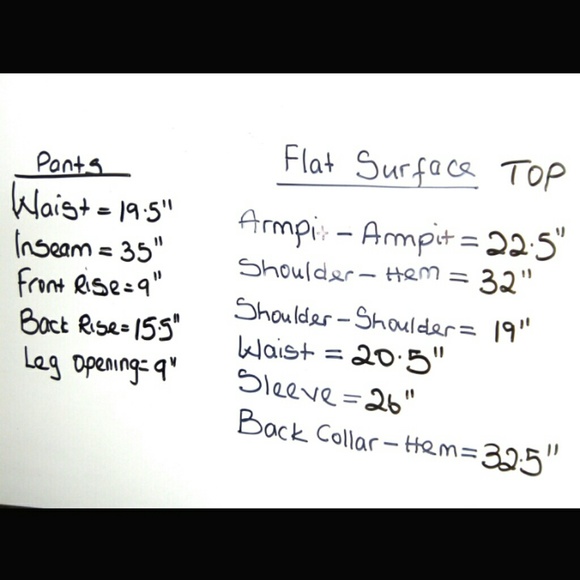 Pants
Waist = 19.5"
Inseam = 35"
Front Rise = 9"
Back Rise = 15.5"
Leg opening = 9"
Flat Surface TOP
Armpit - Armpit = 22.5"
Shoulder - Hem = 32"
Shoulder - Shoulder = 19"
Waist = 20.5"
Sleeve = 26"
Back Collar - Hem = 32.5"